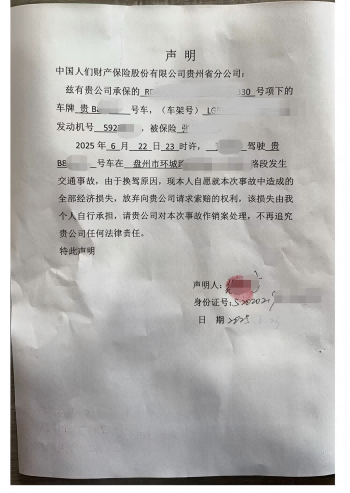 声 明
中国人们财产保险股份有限公司贵州省分公司：
兹有贵公司承保的 30 号项下的
车牌 贵 B 号车，（车架号）
发动机号 592 ，被保险
2025 年 6 月 22 日 23 时许， 驾驶 贵
BE 号车在 盘州市环城 路段发生
交通事故，由于换驾原因，现本人自愿就本次事故中造成的
全部经济损失，放弃向贵公司请求索赔的权利，该损失由我
个人自行承担，请贵公司对本次事故作销案处理，不再追究
贵公司任何法律责任。
特此声明
声明人：
身份证号：
日 期 2025